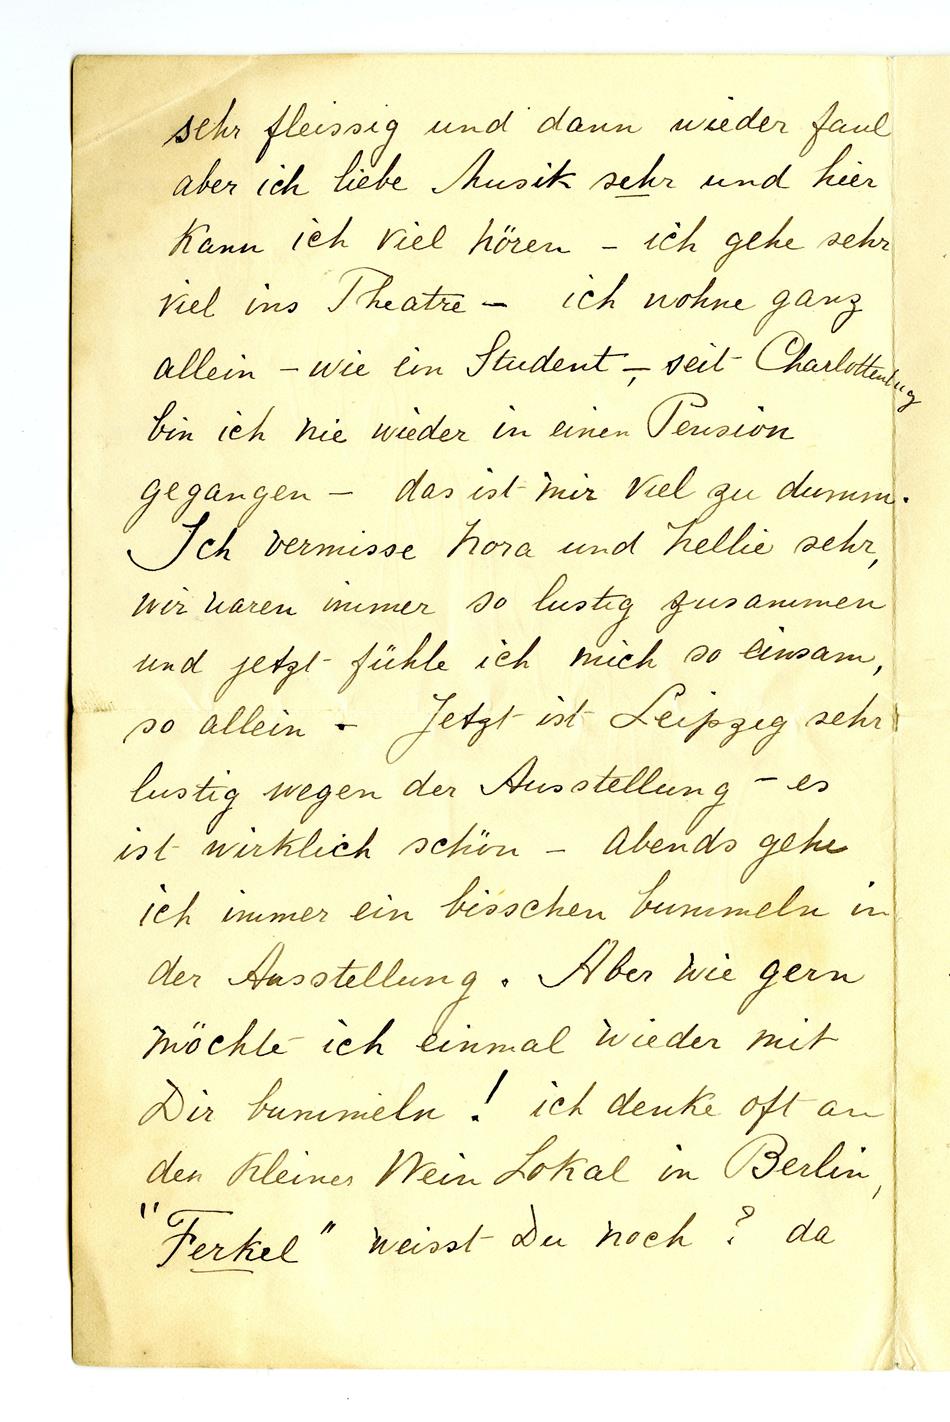 sehr fleissig und dann wieder faul
aber ich liebe Musik sehr und hier
kann ich viel hören – ich gehe sehr
viel ins Theatre – ich wohne ganz
allein – wie ein Student –, seit Charlottenburg
bin ich nie wieder in einen Pension
gegangen – das ist mir viel zu dumm.
Ich vermisse Nora und Nellie sehr,
wir waren immer so lustig zusammen
und jetzt fühle ich mich so einsam,
so allein - Jetzt ist Leipzeg sehr
lustig wegen der Ausstellung – es
ist wirklich schön – abends gehe
ich immer ein bisschen bummeln in
der Ausstellung. Aber wie gern
möchte ich einmal wieder mit
Dir bummeln! ich denke oft an
den kleines Wein Lokal in Berlin,
"Ferkel" weisst Du noch? da